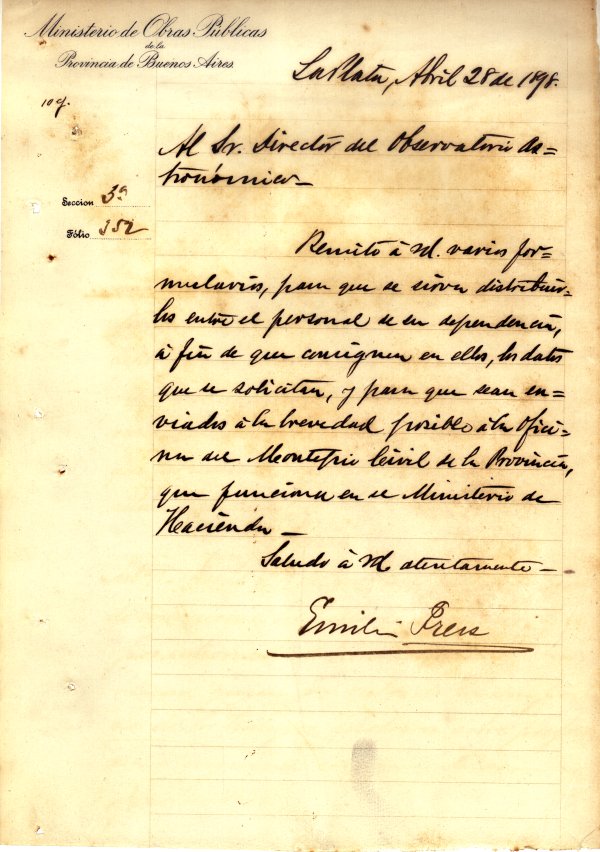 Ministerio de Obras Públicas
de la
Provincia de Buenos Aires
La Plata, Abril 28 de 1898.
Al Sr. Director del Observatorio As=
tronómico—
Seccion 3ª
Fólio 352
Remito á Ud. varios for=
mularios, para que se sirva distribuir=
los entre el personal de su dependencia,
á fin de que consignen en ellos, los datos
que se solicitan, y para que sean en=
viados á la brevedad posible á la Ofici=
na del Montepio Civil de la Provincia,
que funciona en el Ministerio de
Hacienda—
Saludo á Ud atentamente—
Emilio